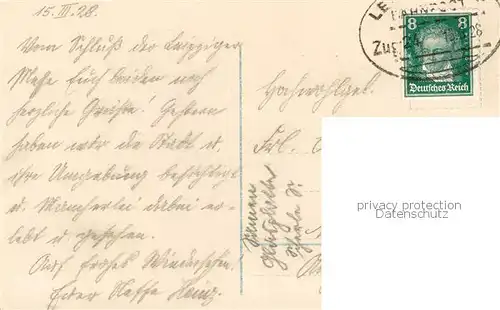 15. III. 28.
Vom Schluß der Leipziger
Messe Euch beiden noch
herzliche Grüße! Gestern
haben wir die Stadt u.
ihre Umgebung besichtigt
u. Mancherlei dabei er-
lebt u. gesehen.
Auf frohes Wiedersehen.
Euer Neffe Heinz.
8 8
Deutsches Reich
BAHNPOST
Zug
Hochwohlgeb.
Frl.
privacy protection
Datenschutz